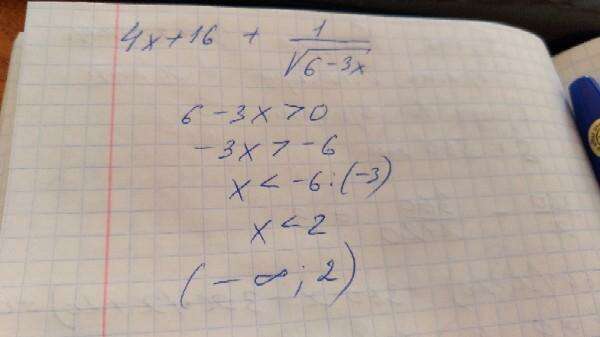 4x+16 + 1/√(6-3x)
6-3x>0
-3x>-6
x<-6:(-3)
x<2
(-∞;2)